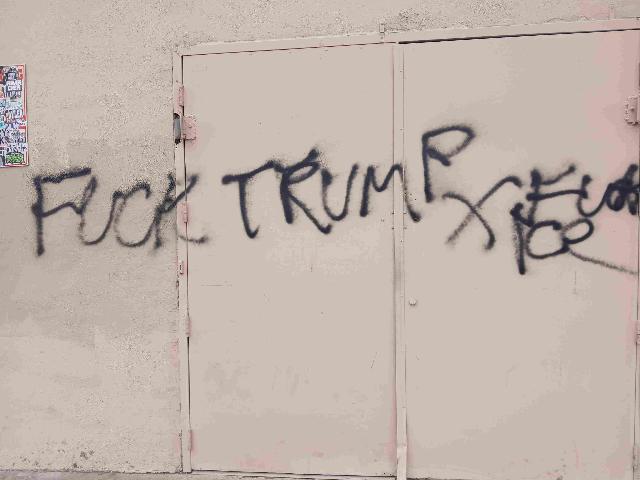 FUCK TRUMP X FUCK
ICE